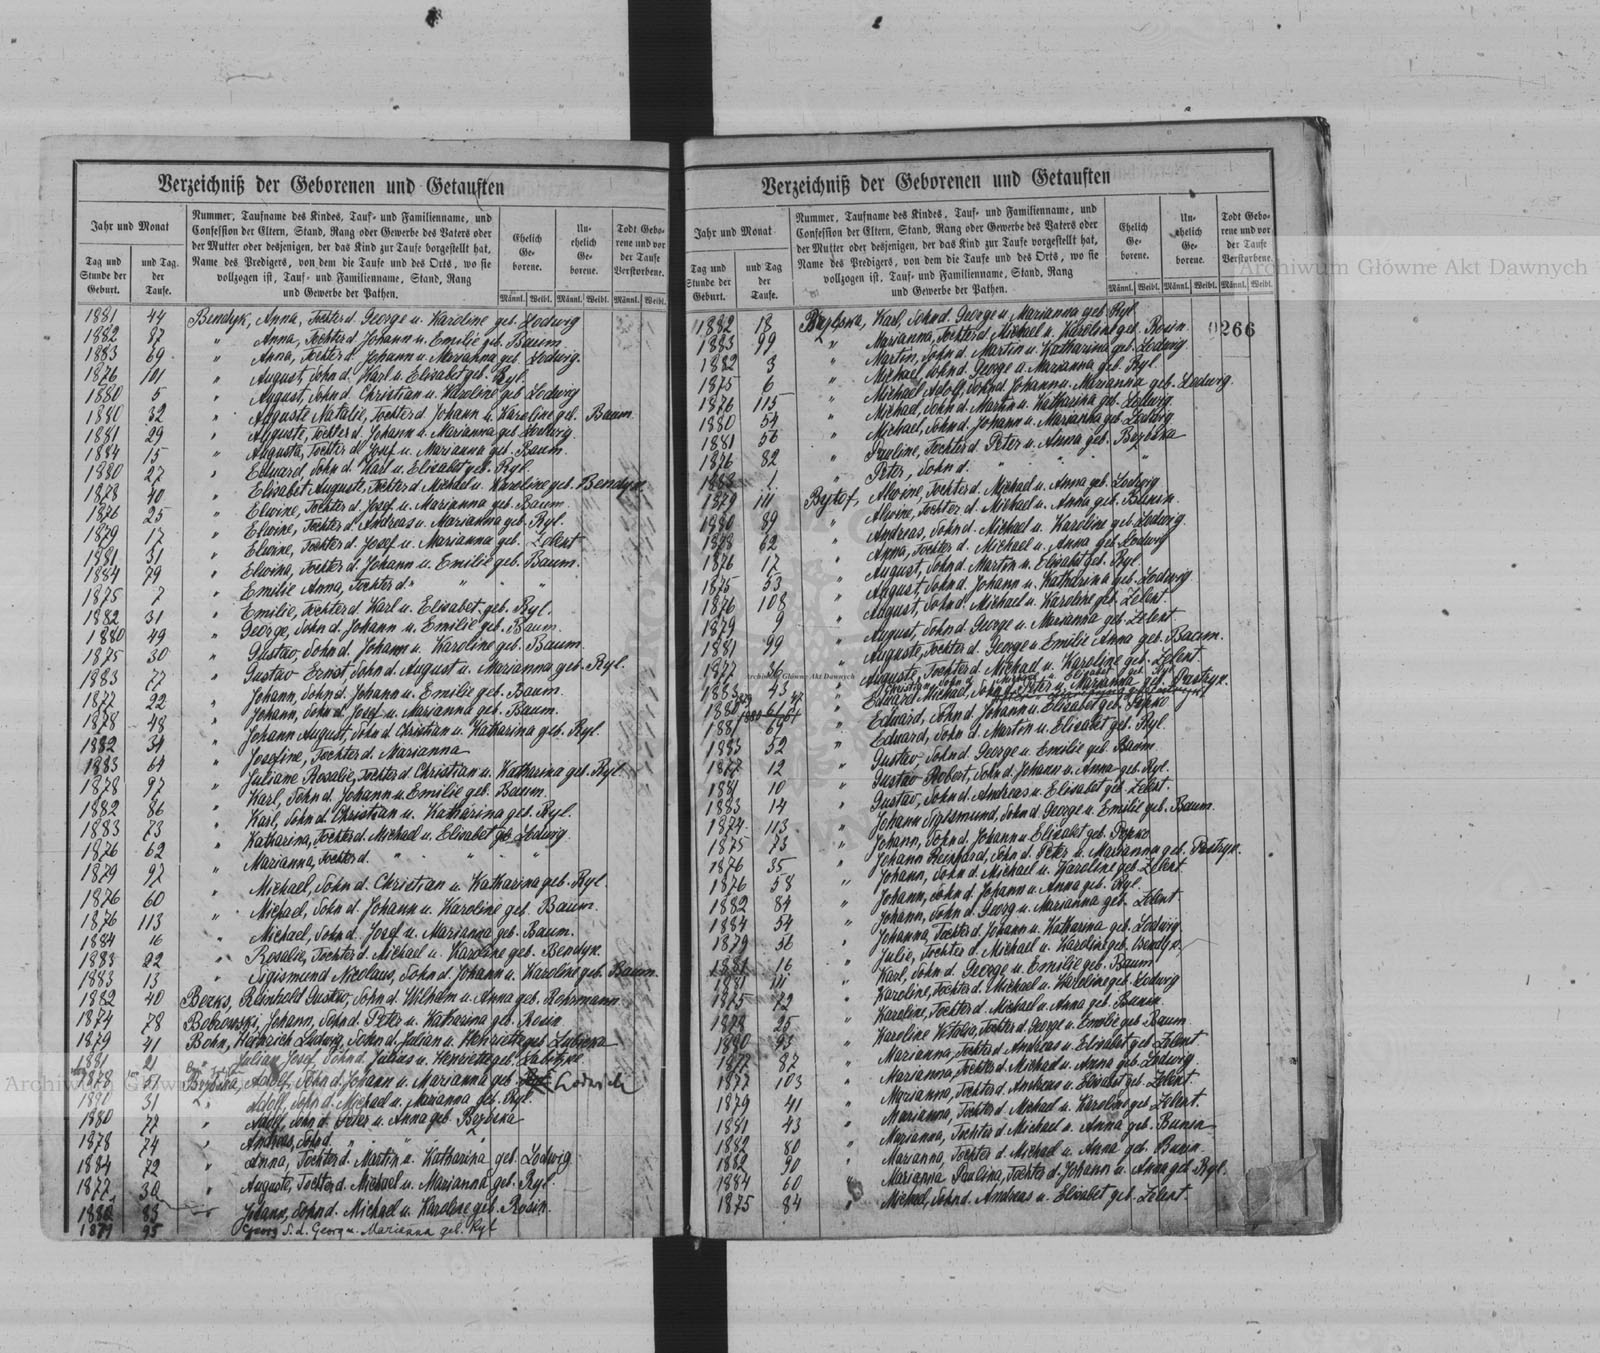 Verzeichniß der Geborenen und Getauften
Jahr und Monat
Tag und Stunde der Geburt.
und Tag. der Taufe.
Nummer, Taufname des Kindes, Tauf- und Familienname, und
Confession der Eltern, Stand, Rang oder Gewerbe des Vaters oder
der Mutter oder desjenigen, der das Kind zur Taufe vorgestellt hat,
Name des Predigers, von dem die Taufe und des Orts, wo sie
vollzogen ist, Tauf- und Familienname, Stand, Rang
und Gewerbe der Pathen.
Ehelich Ge- borene.
Un- ehelich Ge- borene.
Todt Gebo- rene und vor der Taufe Verstorbene.
Männl. Weibl. Männl. Weibl. Männl. Weibl.
1881 44 Bendyk, Anna, Tochter d. George u. Karoline geb. Lodwig
1882 87 " Anna, Tochter d. Johann u. Emilie geb. Baum
1883 69 " Anna, Tochter d. Johann u. Marianna geb. Lodwig.
1876 101 " August, Sohn d. Karl u. Elisabet geb. Ryl.
1880 5 " August, Sohn d. Christian u. Karoline geb. Lodwig
1880 32 " Auguste Natalie, Tochter d. Johann u. Karoline geb. Baum
1881 29 " Auguste, Tochter d. Johann u. Marianna geb. Lodwig.
1884 15 " Auguste, Tochter d. Josef u. Marianna geb. Baum.
1880 27 " Eduard, Sohn d. Karl u. Elisabet geb. Ryl.
1878 40 " Elisabet Auguste, Tochter d. Michael u. Karoline geb. Bendyk
1876 25 " Elwine, Tochter d. Josef u. Marianna geb. Baum
1879 17 " Elwine, Tochter d. Andreas u. Marianna geb. Ryl.
1881 31 " Elwine, Tochter d. Josef u. Marianna geb. Zelent
1884 79 " Elwina, Tochter d. Johann u. Emilie geb. Baum.
1875 7 " Emilie Anna, Tochter d. " " "
1882 31 " Emilie, Tochter d. Karl u. Elisabet geb. Ryl.
1880 49 " George, Sohn d. Johann u. Emilie geb. Baum.
1875 30 " Gustav, Sohn d. Johann u. Karoline geb. Baum
1883 77 " Gustav Ernst, Sohn d. August u. Marianna geb. Ryl.
1877 22 " Johann, Sohn d. Johann u. Emilie geb. Baum.
1878 48 " Johann, Sohn d. Josef u. Marianna geb. Baum.
1882 34 " Johann August, Sohn d. Christian u. Katharina geb. Ryl.
1883 64 " Josefine, Tochter d. Marianna
1878 97 " Juliane Rosalie, Tochter d. Christian u. Katharina geb. Ryl
1882 86 " Karl, Sohn d. Johann u. Emilie geb. Baum.
1883 73 " Karl, Sohn d. Christian u. Katharina geb. Ryl.
1876 62 " Katharina, Tochter d. Michael u. Elisabet geb. Lodwig.
1879 97 " Marianna, Tochter d. " " "
1876 60 " Michael, Sohn d. Christian u. Katharina geb. Ryl.
1876 113 " Michael, Sohn d. Johann u. Karoline geb. Baum.
1884 16 " Michael, Sohn d. Josef u. Marianna geb. Baum.
1883 22 " Rosalie, Tochter d. Michael u. Karoline geb. Bendyk.
1883 13 " Sigismund Nicolaus, Sohn d. Johann u. Karoline geb. Baum.
1882 40 Berks, Reinhold Gustav, Sohn d. Wilhelm u. Anna geb. Rohrmann
1874 78 Bobrowski, Johann, Sohn d. Peter u. Katharina geb. Rosin
1879 41 Bohn, Heinrich Ludwig, Sohn d. Julian u. Henriette geb.
1881 21 " Julian Josef, Sohn d. Julius u. Henriette geb.
1878 51 Brybska, Adolf, Sohn d. Johann u. Marianna geb.
31 " Adolf, Sohn d. Michael u. Marianna geb. Ryl.
1880 77 " Adolf, Sohn d. Peter u. Anna geb. Brybska
1878 74 " Andreas, Sohn d. " " "
1884 72 " Anna, Tochter d. Martin u. Katharina geb. Lodwig
1877 30 " Auguste, Tochter d. Michael u. Marianna geb. Ryl.
83 Johann, Sohn d. Michael u. Karoline geb. Rosin.
1879 95 Georg S. d. Georg u. Marianna geb. Ryl
Verzeichniß der Geborenen und Getauften
Jahr und Monat
Tag und Stunde der Geburt.
und Tag der Taufe.
Nummer, Taufname des Kindes, Tauf- und Familienname, und
Confession der Eltern, Stand, Rang oder Gewerbe des Vaters oder
der Mutter oder desjenigen, der das Kind zur Taufe vorgestellt hat,
Name des Predigers, von dem die Taufe und des Orts, wo sie
vollzogen ist, Tauf- und Familienname, Stand, Rang
und Gewerbe der Pathen.
Ehelich Ge- borene.
Un- ehelich Ge- borene.
Todt Gebo- rene und vor der Taufe Verstorbene.
Männl. Weibl. Männl. Weibl. Männl. Weibl.
0266
1882 18 Brybska, Karl, Sohn d. George u. Marianna geb. Ryl
1883 99 " Marianna, Tochter d. Michael u. Karoline geb. Rosin.
" Martin, Sohn d. Martin u. Katharina geb. Lodwig.
1882 3 " Michael, Sohn d. George u. Marianna geb. Ryl.
1875 6 " Michael Adolf, Sohn d. Johann u. Marianna geb. Lodwig.
1876 115 " Michael, Sohn d. Martin u. Katharina geb. Lodwig.
1880 54 " Michael, Sohn d. Johann u. Marianna geb. Lodwig
1881 56 " Pauline, Tochter d. Peter u. Anna geb. Brybska
1876 82 " Peter, Sohn d. " " "
1883 1. Bytof, Alwine, Tochter d. Michael u. Anna geb. Lodwig
1879 111 " Alwine, Tochter d. Michael u. Anna geb. Bunin.
1880 89 " Andreas, Sohn d. Michael u. Karoline geb. Lodwig.
1878 62 " Anna, Tochter d. Michael u. Anna geb. Lodwig
1876 17 " August, Sohn d. Martin u. Elisabet geb. Ryl
1875 53 " August, Sohn d. Johann u. Katharina geb. Lodwig
1876 108 " August, Sohn d. Michael u. Karoline geb. Zelent
1879 9 " August, Sohn d. George u. Marianna geb. Zelent
1881 99 " Auguste, Tochter d. George u. Emilie Anna geb. Baum.
1877 36 " Auguste, Tochter d. Michael u. Karoline geb. Zelent.
1883 43 " Eduard Michael, Sohn d. Peter u. Marianna geb. Pastryk.
" Eduard, Sohn d. Johann u. Elisabet geb. Popko
1881 69 " Eduard, Sohn d. Martin u. Elisabet geb. Ryl.
1883 52 " Gustav, Sohn d. George u. Emilie geb. Baum.
1877 12 " Gustav Robert, Sohn d. Johann u. Anna geb. Ryl.
1881 10 " Gustav, Sohn d. Andreas u. Elisabet geb. Zelent.
1883 14 " Johann Sigismund, Sohn d. George u. Emilie geb. Baum.
1874 113 " Johann, Sohn d. Johann u. Elisabet geb. Popko
1875 73 " Johann Reinhard, Sohn d. Peter u. Marianna geb. Pastryk.
1876 35 " Johann, Sohn d. Michael u. Karoline geb. Zelent
1876 58 " Johann, Sohn d. Johann u. Anna geb. Ryl
1882 84 " Johann, Sohn d. Georg u. Marianna geb. Zelent.
1884 54 " Johanna, Tochter d. Johann u. Katharina geb. Lodwig
1879 56 " Julie, Tochter d. Michael u. Karoline geb. Bendyk
1881 16 " Karl, Sohn d. George u. Emilie geb. Baum
1881 111 " Karoline, Tochter d. Michael u. Karoline geb. Lodwig
1875 72 " Karoline, Tochter d. Michael u. Anna geb. Bunin.
1878 25 " Karoline Natalia, Tochter d. George u. Emilie geb. Baum
1880 93 " Marianna, Tochter d. Andreas u. Elisabet geb. Zelent
1877 87 " Marianna, Tochter d. Michael u. Anna geb. Lodwig
1877 103 " Marianna, Tochter d. Andreas u. Elisabet geb. Zelent.
1879 41 " Marianna, Tochter d. Michael u. Karoline geb. Zelent.
1881 43 " Marianna, Tochter d. Michael u. Anna geb. Bunin
1882 80 " Marianna, Tochter d. Michael u. Anna geb. Bunin.
1882 90 " Marianna Paulina, Tochter d. Johann u. Anna geb. Ryl.
1884 60 " Michael, Sohn d. Andreas u. Elisabet geb. Zelent.
1875 84
Archiwum Główne Akt Dawnych
Archiwum Główne Akt Dawnych